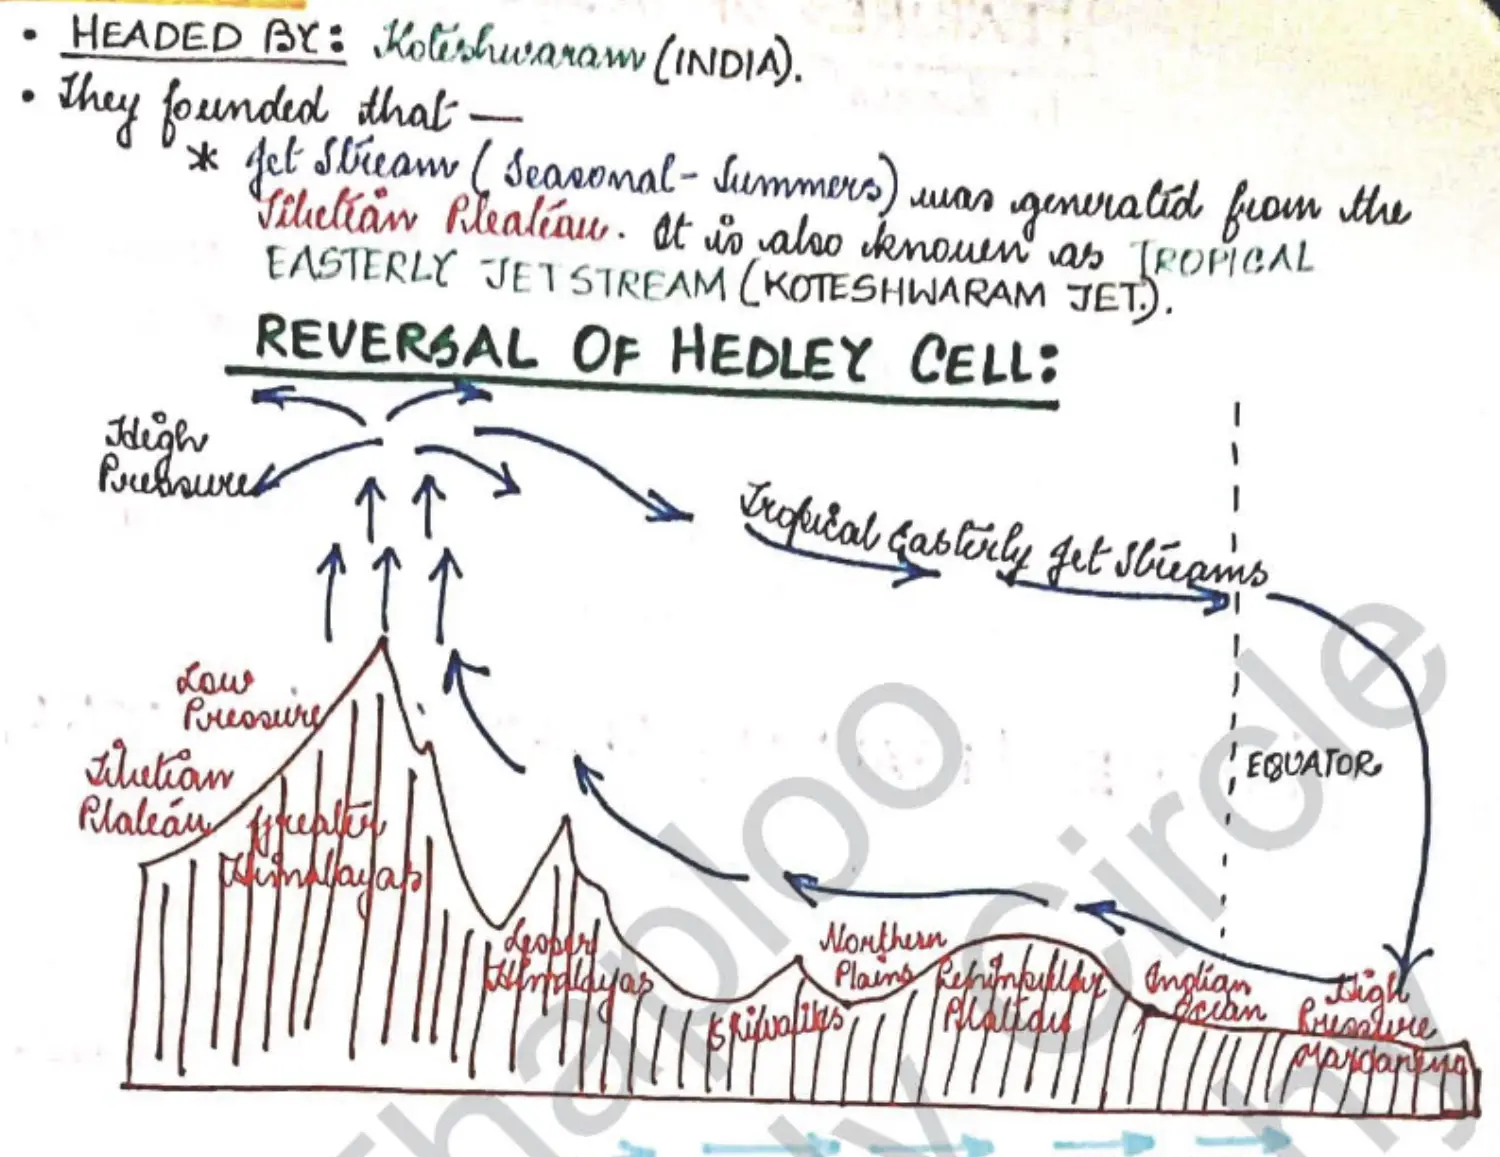 • HEADED BY: Koteshwaram (INDIA).
• They founded that —
* Jet Stream (Seasonal - Summers) was generated from the
Tibetian Plateau. It is also known as TROPICAL
EASTERLY JET STREAM (KOTESHWARAM JET.).
REVERSAL OF HEDLEY CELL:
High
Pressure
Tropical Easterly Jet Streams
Low
Pressure
EQUATOR
Tibetian
Plateau
Greater
Himalayas
Lesser
Himalayas
Shivaliks
Northern
Plains
Peninsular
Plateau
Indian
Ocean
High
Pressure
Thaploo
Circle